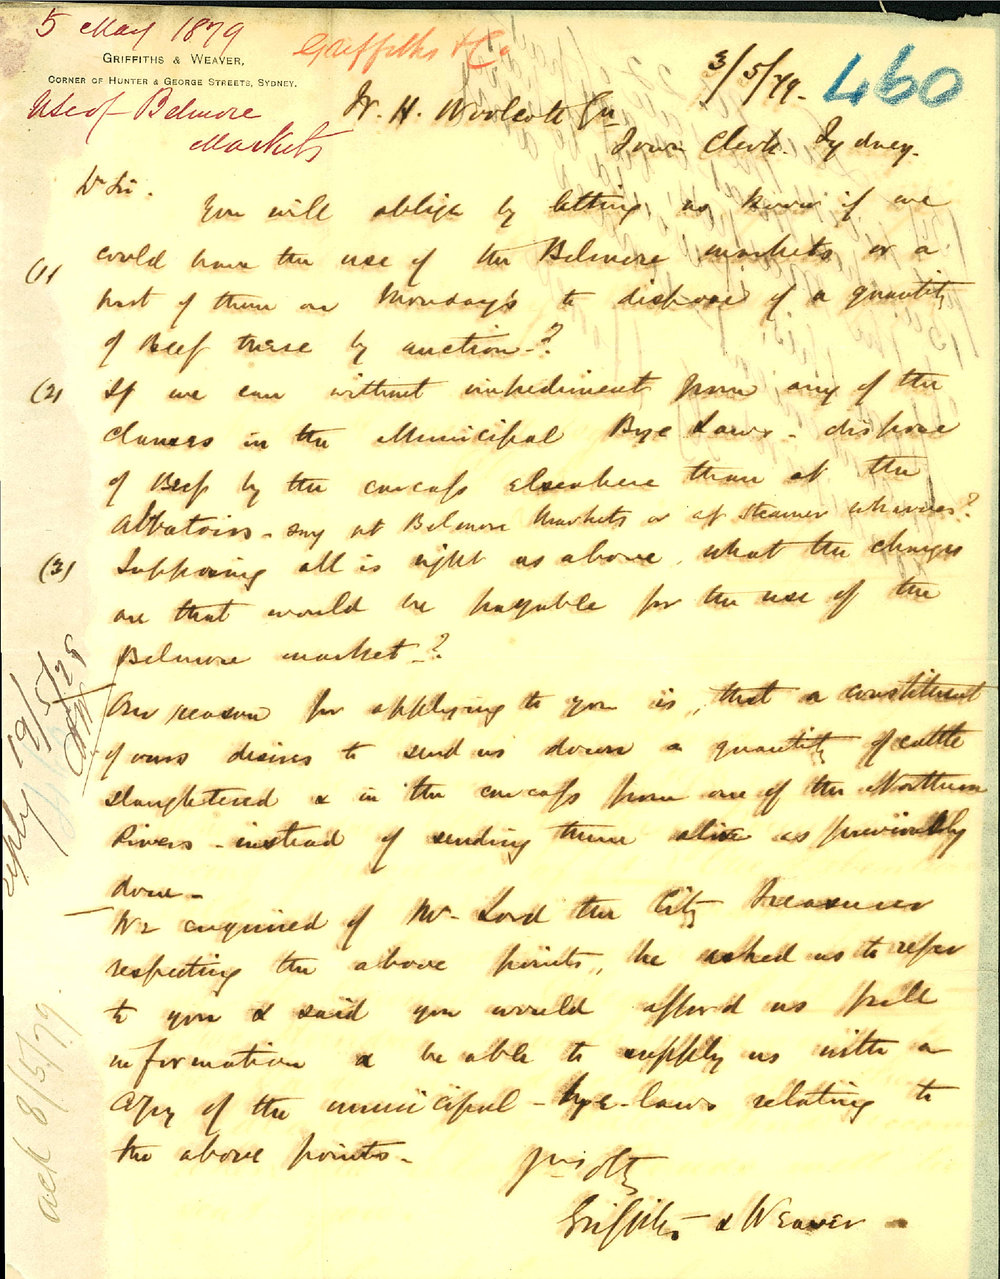 5 May 1879
Griffiths & Co
GRIFFITHS & WEAVER,
CORNER OF HUNTER & GEORGE STREETS, SYDNEY.
3/5/79.
460
Use of Belmore
Markets
W. H. Woolcott Esq
Town Clerk. Sydney.
Dr Sir.
You will oblige by letting us know if we
(1) could have the use of the Belmore markets or a
part of them on Monday's to dispose of a quantity
of Beef there by auction -?
(2) If we can without impediment from any of the
clauses in the Municipal Bye Laws - dispose
of Beef by the carcass elsewhere than at the
Abbatoirs - say at Belmore Markets or at steamer wharves?
(3) Supposing all is right as above, what the charges
are that would be payable for the use of the
Belmore market -?
Our reason for applying to you is, that a constituent
of ours desires to send us down a quantity of cattle
slaughtered & in the carcass from one of the Northern
Rivers - instead of sending them alive as previously
done -
We enquired of Mr. Lord the City Treasurer
respecting the above points, he asked us to refer
to you & said you would afford us full
information & be able to supply us with a
copy of the municipal - bye-laws relating to
the above points -
Yrs Obtly
Griffiths & Weaver
reply 19/5/79
ack 8/5/79.